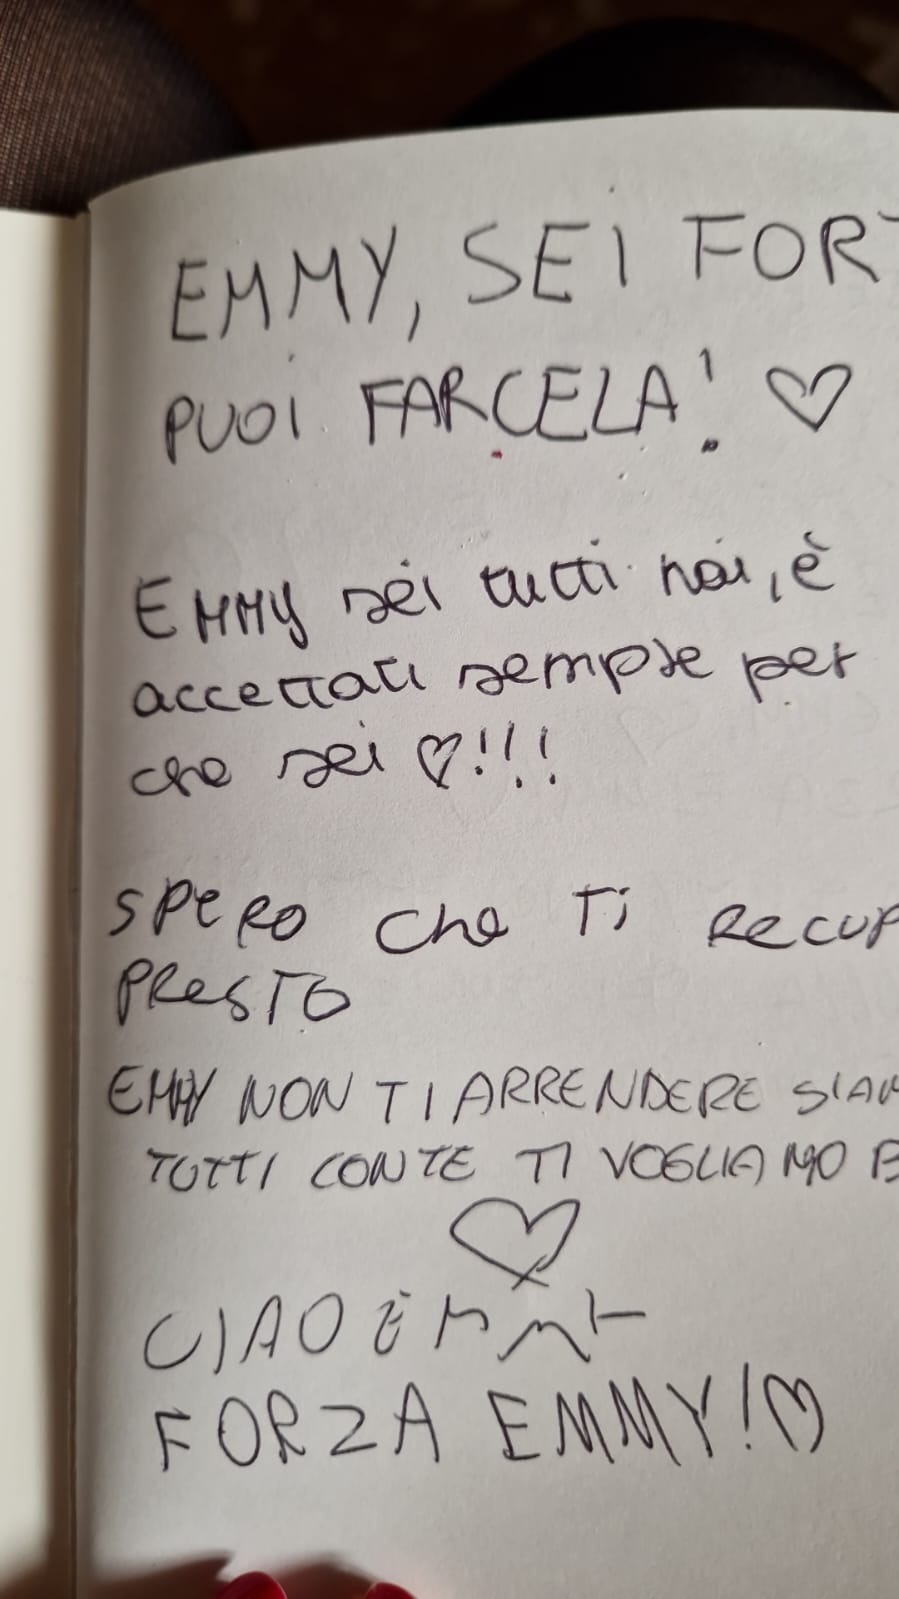 EMMY, SEI FORT
PUOI FARCELA! ♡
EMMY sei tutti noi, è
accettati sempre per
che sei ♡!!!
SPERO che Ti RECUP
PRESTO
EMMY NON TI ARRENDERE SIAM
TUTTI CON TE TI VOGLIAMO B
♡
CIAO
FORZA EMMY!♡